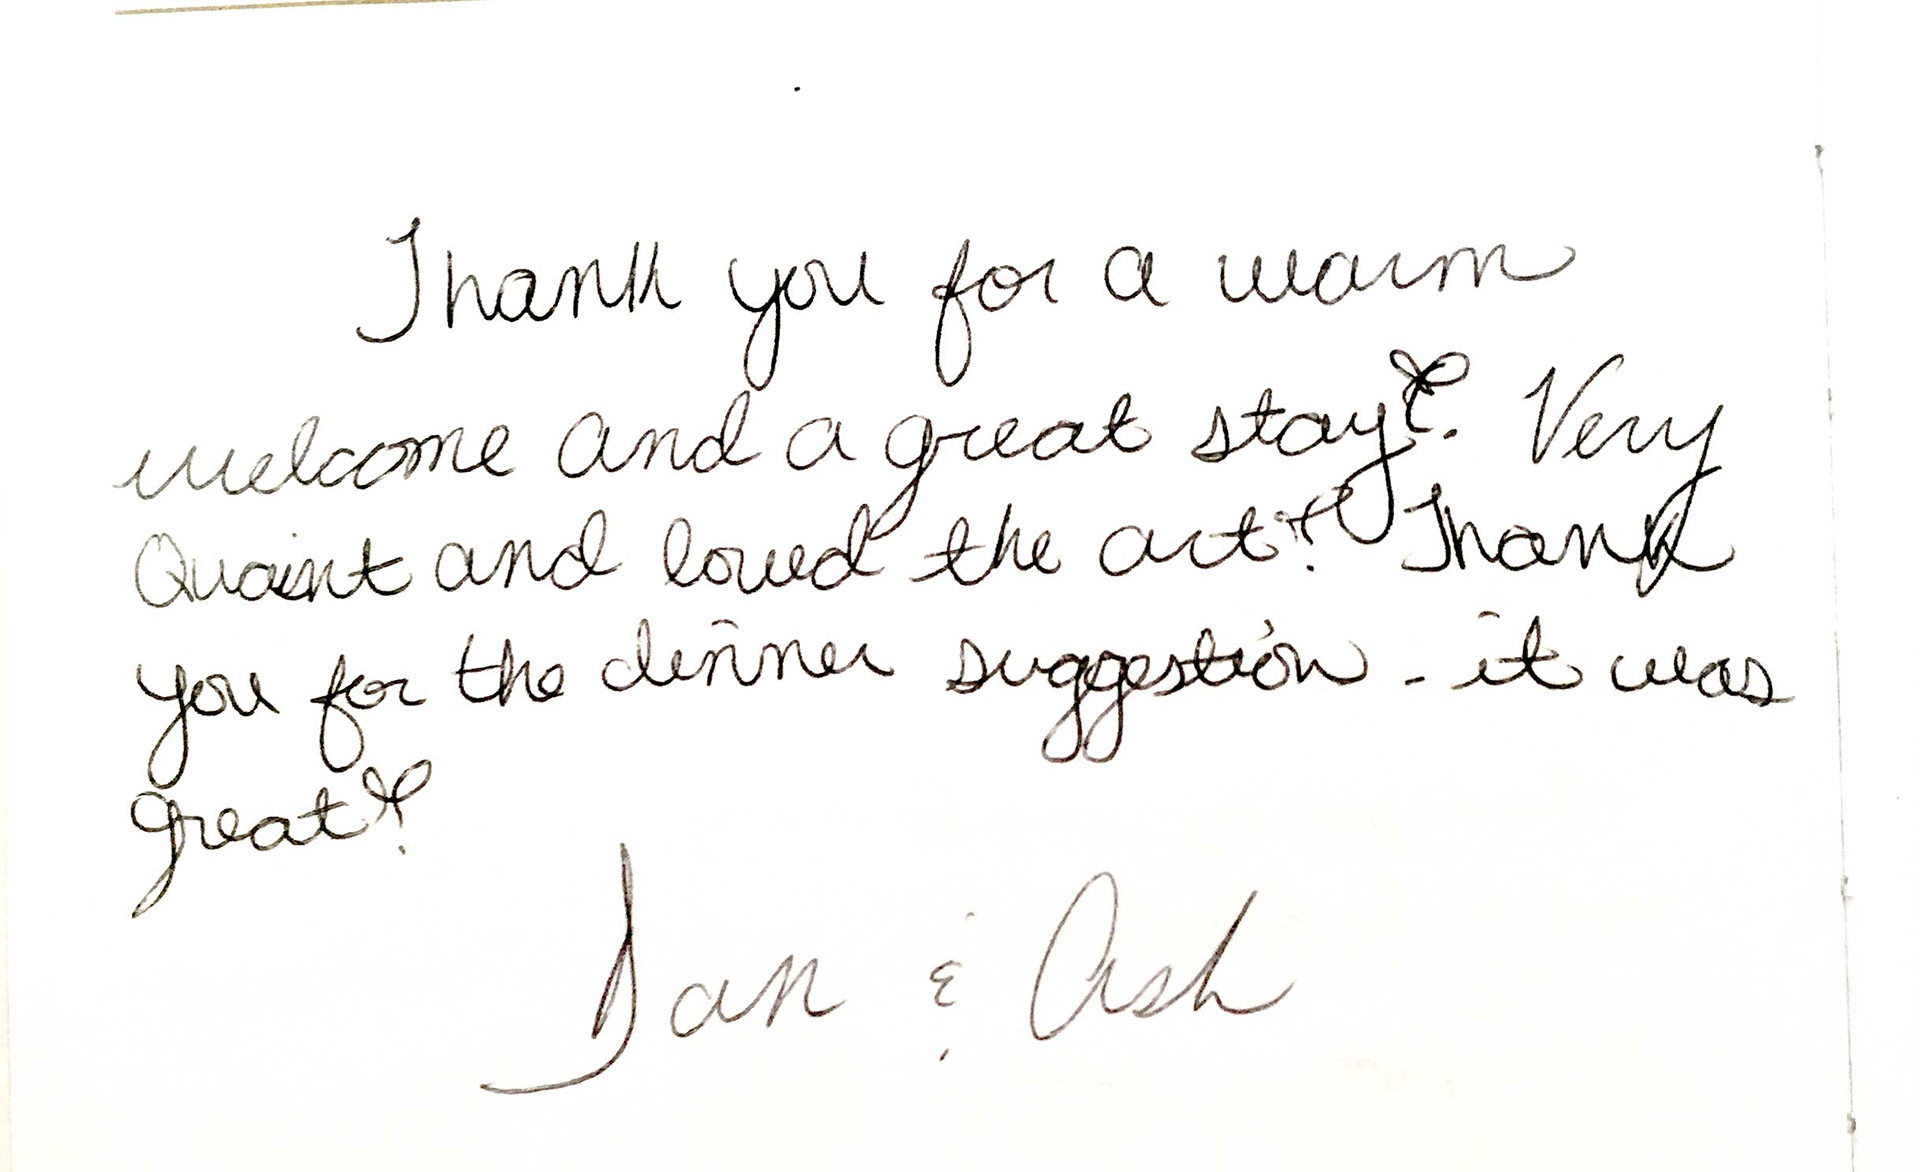 Thank you for a warm
welcome and a great stay! Very
Quaint and loved the art! Thank
you for the dinner suggestion - it was
great!
Dan & Ash